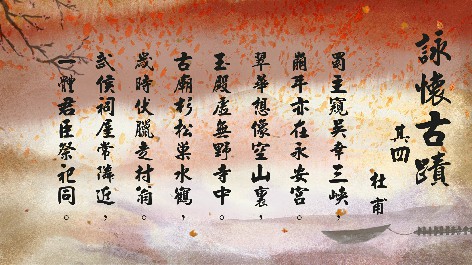 詠懷古蹟
其四
杜甫
蜀主窺吳幸三峽,
崩年亦在永安宮。
翠華想像空山裏,
玉殿虛無野寺中。
古廟杉松巢水鶴,
歲時伏臘走村翁。
武侯祠屋常鄰近,
一體君臣祭祀同。